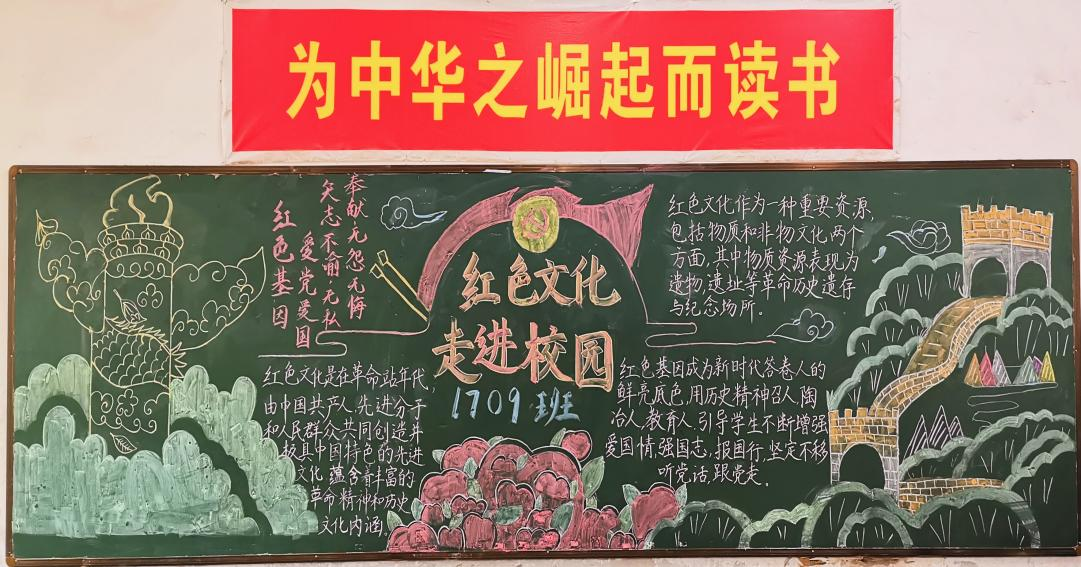 为中华之崛起而读书
奉献无怨无悔
矢志不渝·无私
爱党爱国
红色基因
红色文化
走进校园
1709班
红色文化是在革命站年代,
由中国共产人、先进分子
和人民群众共同创造并
极具中国特色的先进
文化,蕴含着丰富的
革命精神和历史
文化内涵。
红色文化作为一种重要资源,
包括物质和非物文化两个
方面,其中物质资源表现为
遗物、遗址等革命历史遗存
与纪念场所。
红色基因成为新时代答卷人的
鲜亮底色,用历史精神召人、陶
冶人、教育人、引导学生不断增强
爱国情、强国志,报国行,坚定不移
听党话,跟党走。